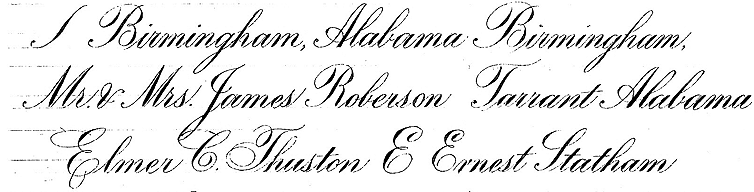 Birmingham, Alabama Birmingham,
Mr. & Mrs. James Roberson Tarrant Alabama
Elmer C. Thuston E Ernest Statham